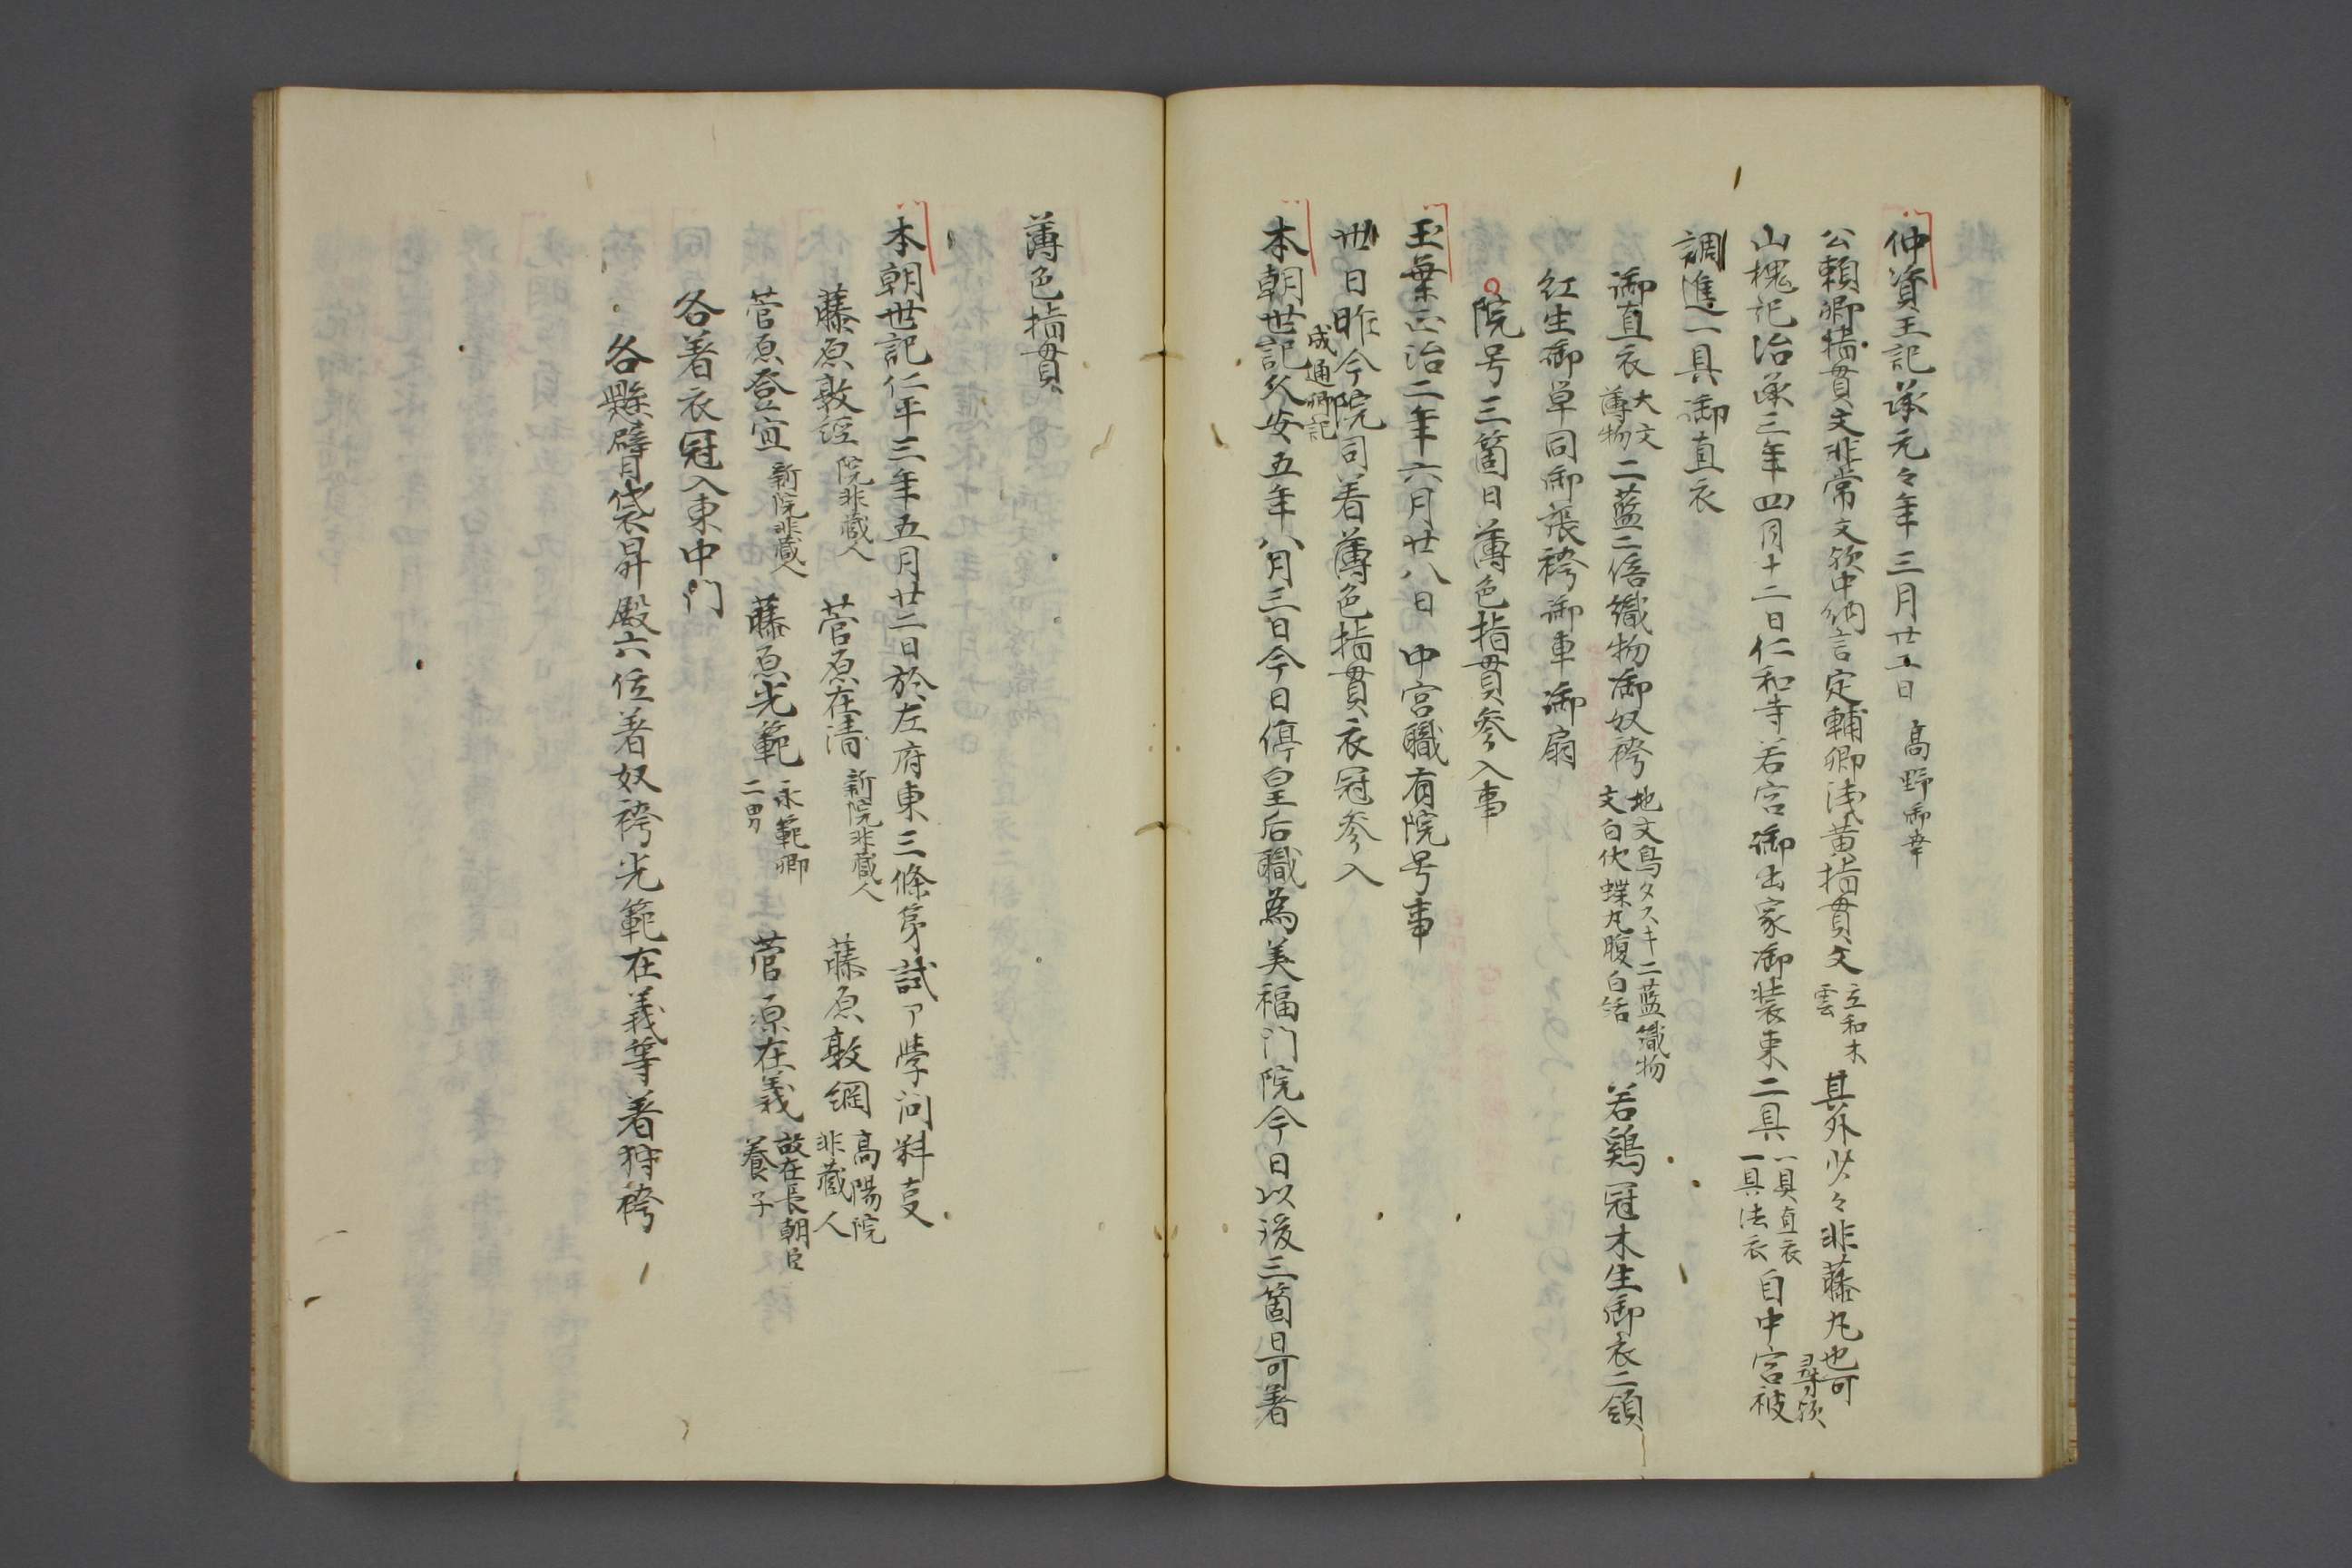 仲資王記承元々年三月廿二日 高野御幸
公頼卿指貫文非常文欤中納言定輔卿浅黄指貫文 立和木雲 其外少々非藤丸也可尋欤
山槐記治承三年四月十二日仁和寺若宮御出家御装束二具 一具直衣一具法衣 自中宮被
調進一具御直衣
御直衣 大文薄物 二藍二倍織物御奴袴 地文鳥タスキ二藍織物文白伏蝶丸腹白括 若鶏冠木生御衣二領
紅生御単同御張袴御車御扇
院号三箇日薄色指貫参入事
玉葉正治二年六月廿八日 中宮職有院号事
卅日昨今院司着薄色指貫衣冠参入
成通卿記
本朝世記久安五年八月三日今日停皇后職為美福門院今日以後三箇日可着
薄色指貫
本朝世記仁平三年五月廿二日於左府東三條第試了学問料叓
藤原敦経 院非蔵人 菅原在清 新院非蔵人 藤原敦綱 高陽院非蔵人
菅原登宣 新院非蔵人 藤原光範 永範卿二男 菅原在義 故在長朝臣養子
各着衣冠入東中门
各懸臂袋昇殿六位着奴袴光範在義等着狩袴